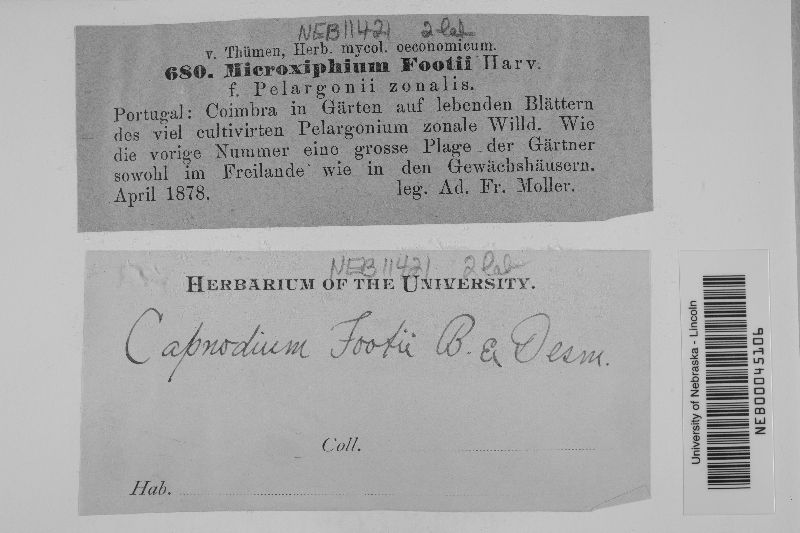 NEB11421 2 lab
v. Thümen, Herb. mycol. oeconomicum.
680. Microxiphium Footii Harv.
f. Pelargonii zonalis.
Portugal: Coimbra in Gärten auf lebenden Blättern
des viel cultivirten Pelargonium zonale Willd. Wie
die vorige Nummer eine grosse Plage der Gärtner
sowohl im Freilande wie in den Gewächshäusern.
April 1878. leg. Ad. Fr. Moller.
NEB11421 2 lab
HERBARIUM OF THE UNIVERSITY.
Capnodium Footii B. & Desm.
Coll.
Hab.
University of Nebraska - Lincoln
NEB00045106